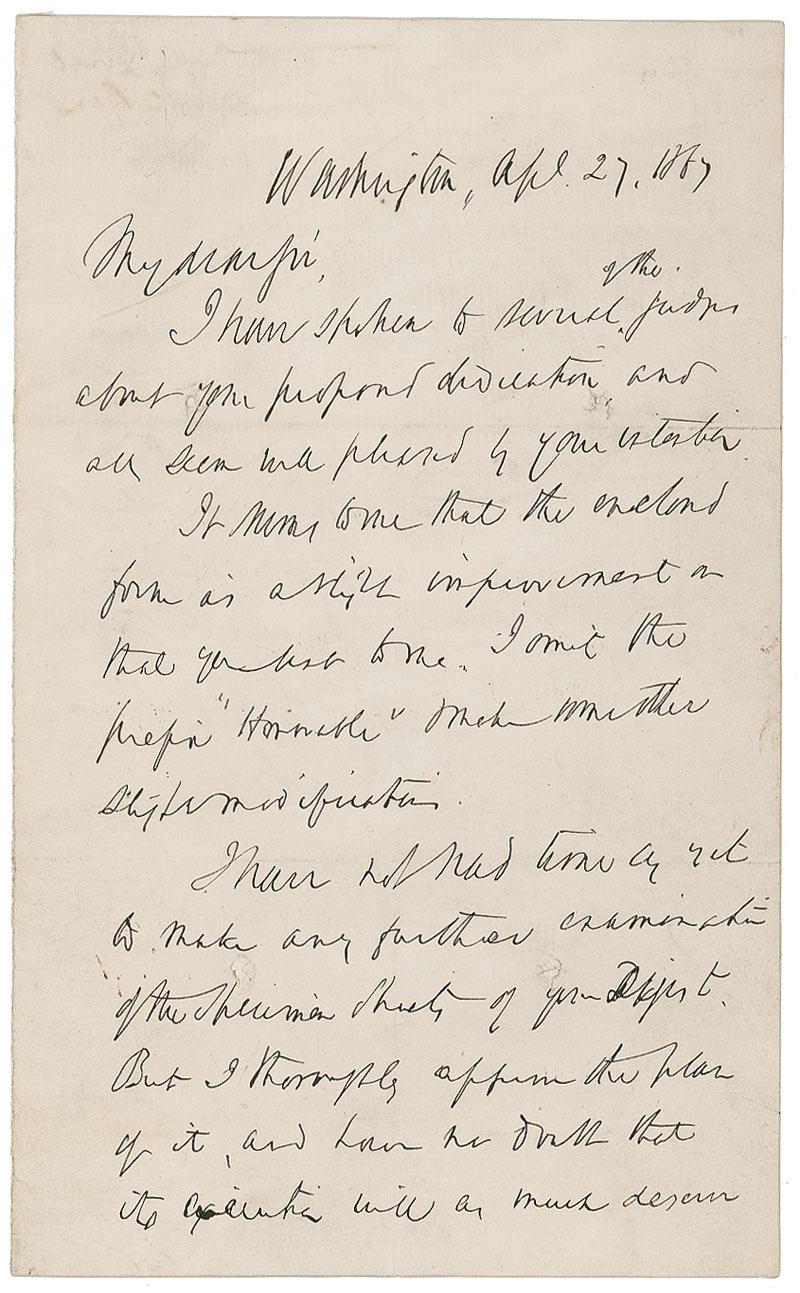 Washington, Apl. 27, 1867
My dear Sir,
of the
I have spoken to several judges
about your proposed dedication, and
all seem well pleased by your intention.
It seems to me that the enclosed
form is a slight improvement on
that you sent to me. I omit the
prefix "Honorable" & make some other
slight modifications.
I have not had time as yet
to make any further examination
of the specimen sheets of your Digest.
But I thoroughly approve the plan
of it, and have no doubt that
its execution will as much deserve